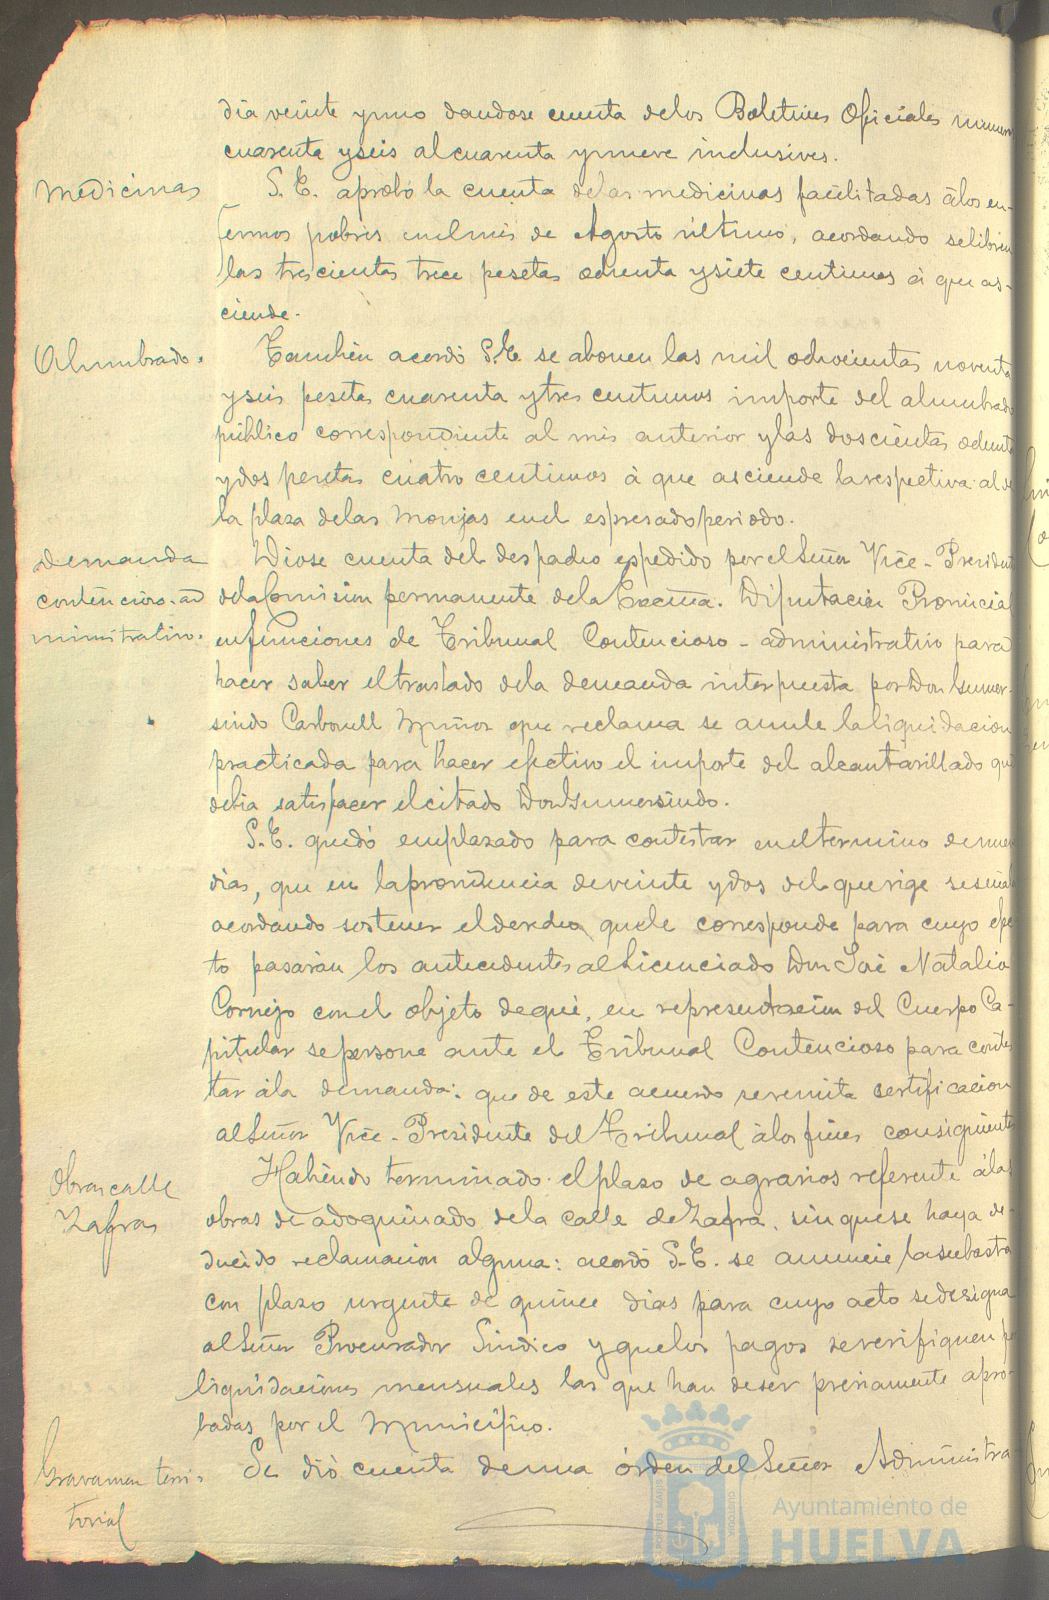 dia veinte yuno dandose cuenta delos Boletines Oficiales numeros
cuarenta yseis alcuarenta ynueve inclusives.
Medicinas
S. E. aprobó la cuenta delas medicinas facilitadas álos en-
fermos pobres enelmes de Agosto último, acordando selibren
las trescientas trece pesetas ochenta ysiete centimos á que as-
ciende.
Alumbrado.
Tambien acordó S.E. se abonen las mil ochocientas noventa
yseis pesetas cuarenta ytres centimos importe del alumbrado
público correspondiente al mes anterior ylas doscientas ochenta
ydos pesetas cuatro centimos á que asciende larespectiva al de
la plaza delas Monjas enel espresado periodo.
Demanda
contencioso-ad
ministrativo.
Diose cuenta del despacho espedido por el Señor Vice-President
dela Comision permanente dela Excma. Diputacion Provincial
enfunciones de Tribunal Contencioso-administrativo para
hacer saber eltraslado dela demanda interpuesta por Don Gumer-
sindo Carbonell Muñoz que reclama se anule laliquidacion
practicada para hacer efectivo el importe del alcantarillado que
debia satisfacer elcitado Don Gumersindo.
S.E. quedó emplazado para contestar eneltermino de nueve
dias, que en laprovidencia deveinte ydos del querige seseñala
acordando sostener elderecho quele corresponde para cuyo efec
to pasarán los antecedentes alLicenciado Don José Natalio
Cornejo conel objeto deque, en representacion del Cuerpo Ca-
pitular sepersone ante el Tribunal Contencioso para contes
tar ála demanda: que de este acuerdo seremita certificacion
alSeñor Vice-Presidente del Tribunal álosfines consiguientes
Obras calle
Zafra
Habiendo terminado elplazo de agravios referente álas
obras de adoquinado dela calle de Zafra, sin quese haya de-
ducido reclamacion alguna: acordó S.E. se anuncie lasubasta
con plazo urgente de quince dias para cuyo acto sedesigna
alSeñor Procurador Sindico yquelos pagos severifiquen por
liquidaciones mensuales las que han deser previamente apro-
badas por el Municipio.
Gravamen terri-
torial
Se dió cuenta deuna órden del Señor Administra
Ayuntamiento de
HUELVA